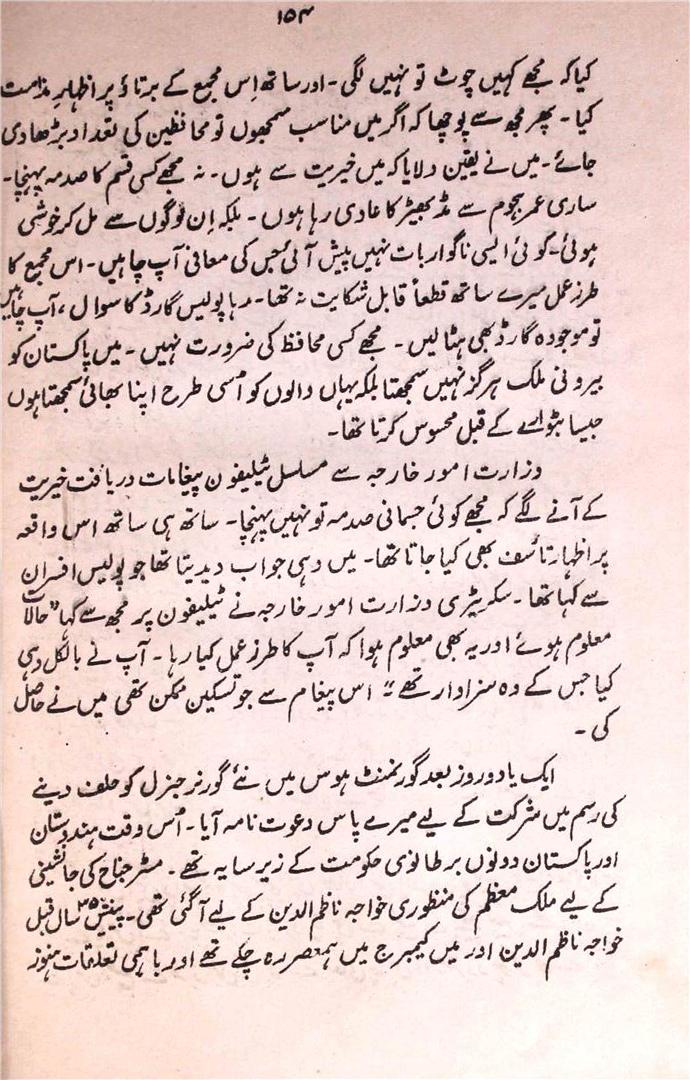 ۱۵۴
کیا کہ مجھے کہیں چوٹ تو نہیں لگی۔ اور ساتھ اِس مجمع کے برتاؤ پر اظہارِ مذامت
کیا۔ پھر مجھ سے پوچھا کہ اگر میں مناسب سمجھوں تو محافظین کی تعداد بڑھا دی
جائے۔ میں نے یقین دلایا کہ میں خیریت سے ہوں۔ نہ مجھے کسی قسم کا صدمہ پہنچا۔
ساری عمر ہجوم سے مڈبھیڑ کا عادی رہا ہوں۔ بلکہ اِن لوگوں سے مل کر خوشی
ہوئی۔ کوئی ایسی ناگوار بات نہیں پیش آئی جس کی معافی آپ چاہیں۔ اس مجمع کا
طرزِ عمل میرے ساتھ قطعاً قابل شکایت نہ تھا۔ رہا پولیس گارڈ کا سوال، آپ چاہیں
تو موجودہ گارڈ بھی ہٹا لیں۔ مجھے کسی محافظ کی ضرورت نہیں۔ میں پاکستان کو
بیرونی ملک ہرگز نہیں سمجھتا بلکہ یہاں والوں کو اُسی طرح اپنا بھائی سمجھتا ہوں
جیسا بٹوارے کے قبل محسوس کرتا تھا۔
وزارت امور خارجہ سے مسلسل ٹیلیفون پیغامات دریافت خیریت
کے آنے لگے کہ مجھے کوئی جسمانی صدمہ تو نہیں پہنچا۔ ساتھ ہی ساتھ اس واقعہ
پر اظہار تاسف بھی کیا جاتا تھا۔ میں وہی جواب دیدیتا تھا جو پولیس افسران
سے کہا تھا۔ سکریٹری وزارت امور خارجہ نے ٹیلیفون پر مجھ سے کہا "حالات
معلوم ہوئے اور یہ بھی معلوم ہوا کہ آپ کا طرز عمل کیا رہا۔ آپ نے بالکل وہی
کیا جس کے وہ سزاوار تھے" اس پیغام سے جو تسکین ممکن تھی میں نے حاصل
کی۔
ایک یا دو روز بعد گورنمنٹ ہوس میں نئے گورنر جنرل کو حلف دینے
کی رسم میں شرکت کے لیے میرے پاس دعوت نامہ آیا۔ اُس وقت ہندوستان
اور پاکستان دونوں برطانوی حکومت کے زیر سایہ تھے۔ مسٹر جناح کی جانشینی
کے لیے ملک معظم کی منظوری خواجہ ناظم الدین کے لیے آ گئی تھی۔ پینتیس ۳۵ سال قبل
خواجہ ناظم الدین اور میں کیمبرج میں ہمعصر رہ چکے تھے اور باہمی تعلقات ہنوز